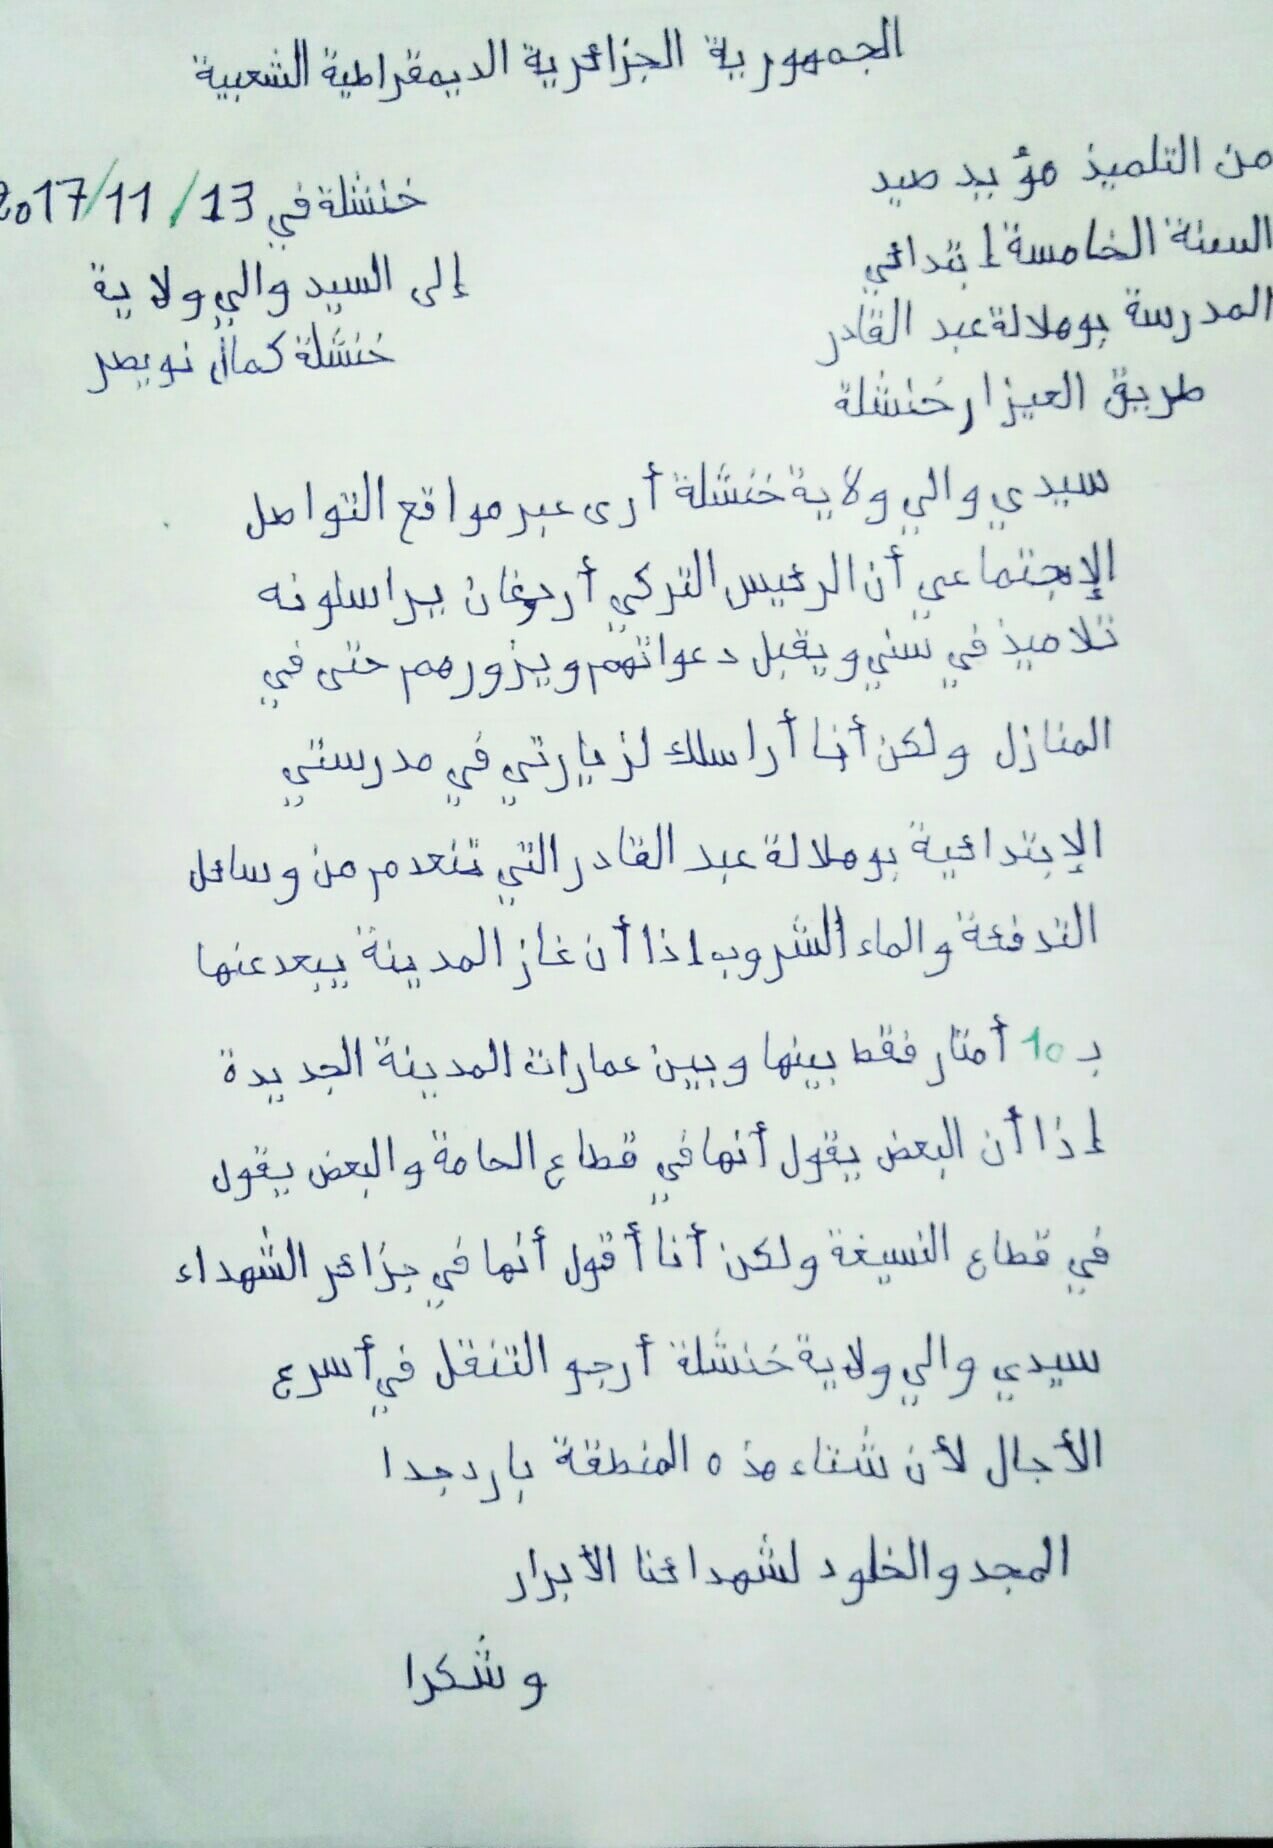 الجمهورية الجزائرية الديمقراطية الشعبية
من التلميذ مؤيد صيد
السنة الخامسة إبتدائي
المدرسة بوهلالة عبد القادر
طريق العيزار خنشلة
خنشلة في 13/11/2017
إلى السيد والي ولاية
خنشلة كمال نويصر
سيدي والي ولاية خنشلة أرى عبر مواقع التواصل
الإجتماعي أن الرئيس التركي أردوغان يراسلونه
تلاميذ في سني ويقبل دعواتهم ويزورهم حتى في
المنازل ولكن أنا أراسلك لزيارتي في مدرستي
الإبتدائية بوهلالة عبد القادر التي تنعدم من وسائل
التدفئة والماء الشروب إذا أن غاز المدينة يبعد عنها
بـ 10 أمتار فقط بينها وبين عمارات المدينة الجديدة
إذا أن البعض يقول أنها في قطاع الحامة والبعض يقول
في قطاع النسيغة ولكن أنا أقول أنها في جزائر الشهداء
سيدي والي ولاية خنشلة أرجو التنقل في أسرع
الأجال لأن شتاء هذه المنطقة بارد جدا
المجد والخلود لشهدائنا الأبرار
وشكرا